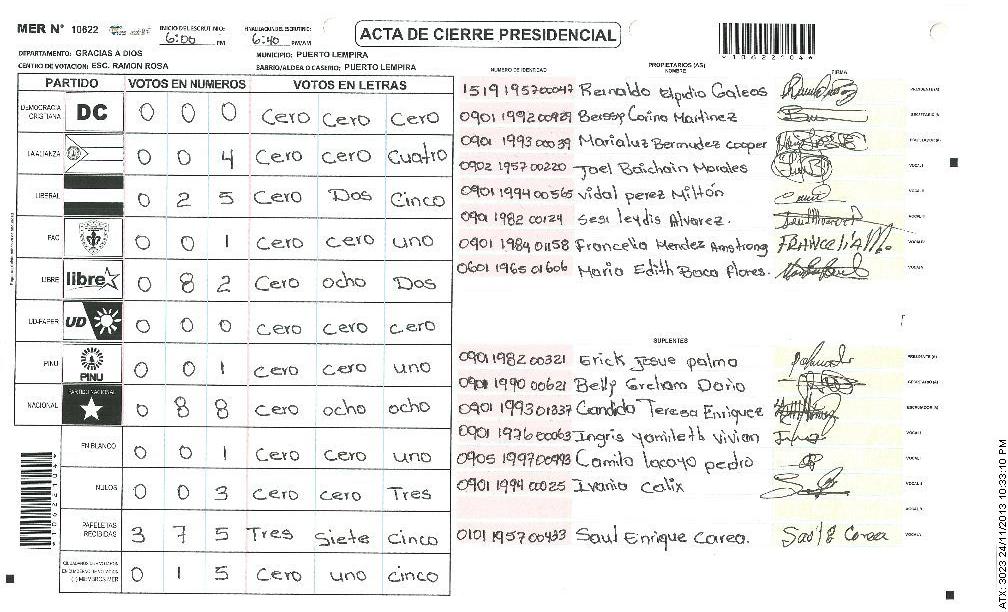 MER N° 10622 INICIO DEL ESCRUTINIO: 6:00 PM FINALIZACION DEL ESCRUTINIO: 6:40 PM/AM ACTA DE CIERRE PRESIDENCIAL
*10622104*
DEPARTAMENTO: GRACIAS A DIOS MUNICIPIO: PUERTO LEMPIRA
CENTRO DE VOTACION: ESC. RAMON ROSA BARRIO/ALDEA O CASERIO: PUERTO LEMPIRA
PARTIDO VOTOS EN NUMEROS VOTOS EN LETRAS
DEMOCRACIA CRISTIANA DC 0 0 0 Cero Cero Cero
LA ALIANZA 0 0 4 Cero Cero Cuatro
LIBERAL 0 2 5 Cero Dos Cinco
PAC 0 0 1 Cero Cero uno
LIBRE libre 0 8 2 Cero ocho Dos
UD-FAPER UD 0 0 0 Cero Cero Cero
PINU PINU 0 0 1 Cero Cero uno
NACIONAL PARTIDO NACIONAL 0 8 8 Cero ocho ocho
EN BLANCO 0 0 1 Cero Cero uno
NULOS 0 0 3 Cero Cero Tres
PAPELETAS RECIBIDAS 3 7 5 Tres Siete Cinco
0 1 5 Cero uno cinco
NUMERO DE IDENTIDAD PROPIETARIOS (AS) NOMBRE FIRMA
1519 1957 00047 Reinaldo Elpidio Galeas PRESIDENTE (A)
0901 1992 00929 Beissy Corina Martinez SECRETARIO (A)
0901 1993 00039 Marialuz Bermudez cooper ESCRUTADOR (A)
0902 1957 00220 Joel Baichain Morales VOCAL I
0901 1994 00565 Vidal perez Miltón VOCAL II
0901 1982 00124 Sesi leydis Alvarez.
0901 1984 01158 Francella Mendez Armstrong
0601 1965 01606 Maria Edith Baca flores.
SUPLENTES
0901 1982 00321 Erick Josue palma PRESIDENTE (A)
0901 1990 00621 Belly Greham Dorio SECRETARIO (A)
0901 1993 01337 Candida Teresa Enriquez ESCRUTADOR (A)
0901 1976 00063 Ingris yamileth vivian VOCAL I
0905 1997 00493 Camilo lacayo pedro
0901 1994 00025 Ivania Calix
0101 1957 00433 Saul Enrique Carea. Saul E Carea
ATX: 3023 24/11/2013 10:33:10 PM